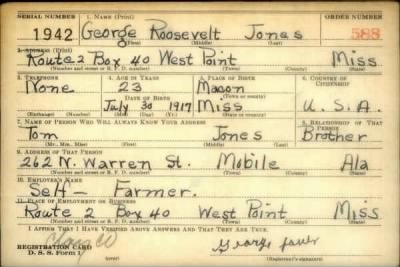 SERIAL NUMBER 1. NAME (Print) ORDER NUMBER
1942 George Roosevelt Jones 588
(First) (Middle) (Last)
2. ADDRESS (Print)
Route 2 Box 40 West Point Miss.
(Number and street or R. F. D. number) (Town) (County) (State)
3. TELEPHONE 4. AGE IN YEARS 5. PLACE OF BIRTH 6. COUNTRY OF CITIZENSHIP
None 23 Macon
DATE OF BIRTH (Town or county)
July 30 1917 Miss U.S.A.
(Exchange) (Number) (Mo.) (Day) (Yr.) (State or country)
7. NAME OF PERSON WHO WILL ALWAYS KNOW YOUR ADDRESS 8. RELATIONSHIP OF THAT PERSON
Tom Jones Brother
(Mr., Mrs., Miss) (First) (Middle) (Last)
9. ADDRESS OF THAT PERSON
262 N. Warren St. Mobile Ala
(Number and street or R. F. D. number) (Town) (County) (State)
10. EMPLOYER'S NAME
Self - Farmer.
11. PLACE OF EMPLOYMENT OR BUSINESS
Route 2 Box 40 West Point Miss.
(Number and street or R. F. D. number) (Town) (County) (State)
I AFFIRM THAT I HAVE VERIFIED ABOVE ANSWERS AND THAT THEY ARE TRUE.
REGISTRATION CARD
D. S. S. Form 1 (over) (Registrant's signature)
George